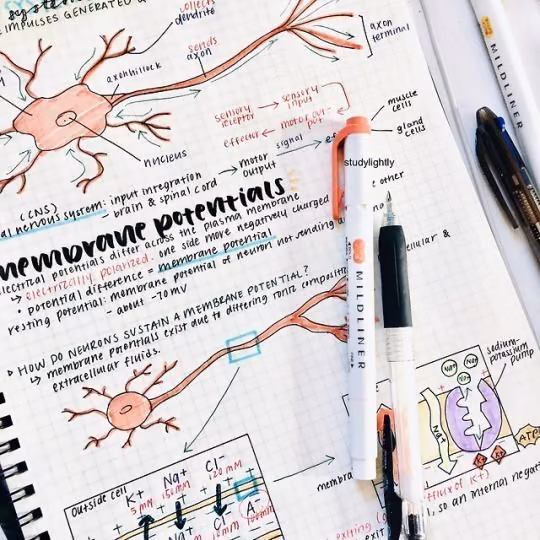 system
IMPULSES GENERATED &
collects
dendrite
sends
axon
axon
terminal
axonhillock
nucleus
sensory
receptor → sensory
input
effector ← motor out-
put
muscle
cells
gland
cells
signal
(CNS)
al nervous system: input integration → motor
brain & spinal cord output
studylightly
membrane potentials
electrical potentials differ across the plasma membrane
↳ electrically polarized. one side more negatively charged
other
• potential difference = membrane potential
resting potential: membrane potential of neuron not sending
- about -70mV
▷ HOW DO NEURONS SUSTAIN A MEMBRANE POTENTIAL?
↳ membrane potentials exist due to differing ionic
extracellular fluids.
MILDLINER
MILDLINER
sodium-
potassium
pump
Na+
Na+
Na+
Na+
K+
K+
ATP
Outside cell
K+
5 mM
Na+
150 mM
Cl-
120 mM
Na+
Cl-
A-
flux of K+)
so an internal